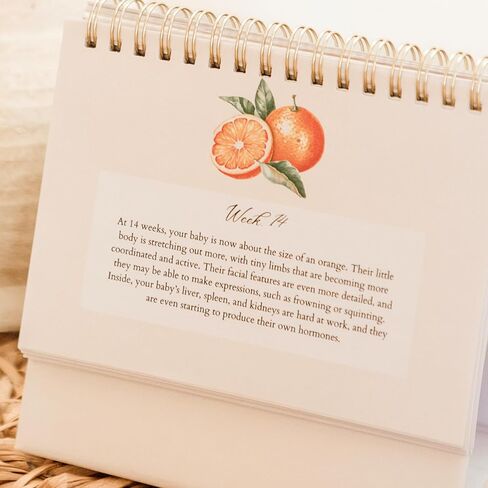 Week 14
At 14 weeks, your baby is now about the size of an orange. Their little
body is stretching out more, with tiny limbs that are becoming more
coordinated and active. Their facial features are even more detailed, and
they may be able to make expressions, such as frowning or squinting.
Inside, your baby's liver, spleen, and kidneys are hard at work, and they
are even starting to produce their own hormones.